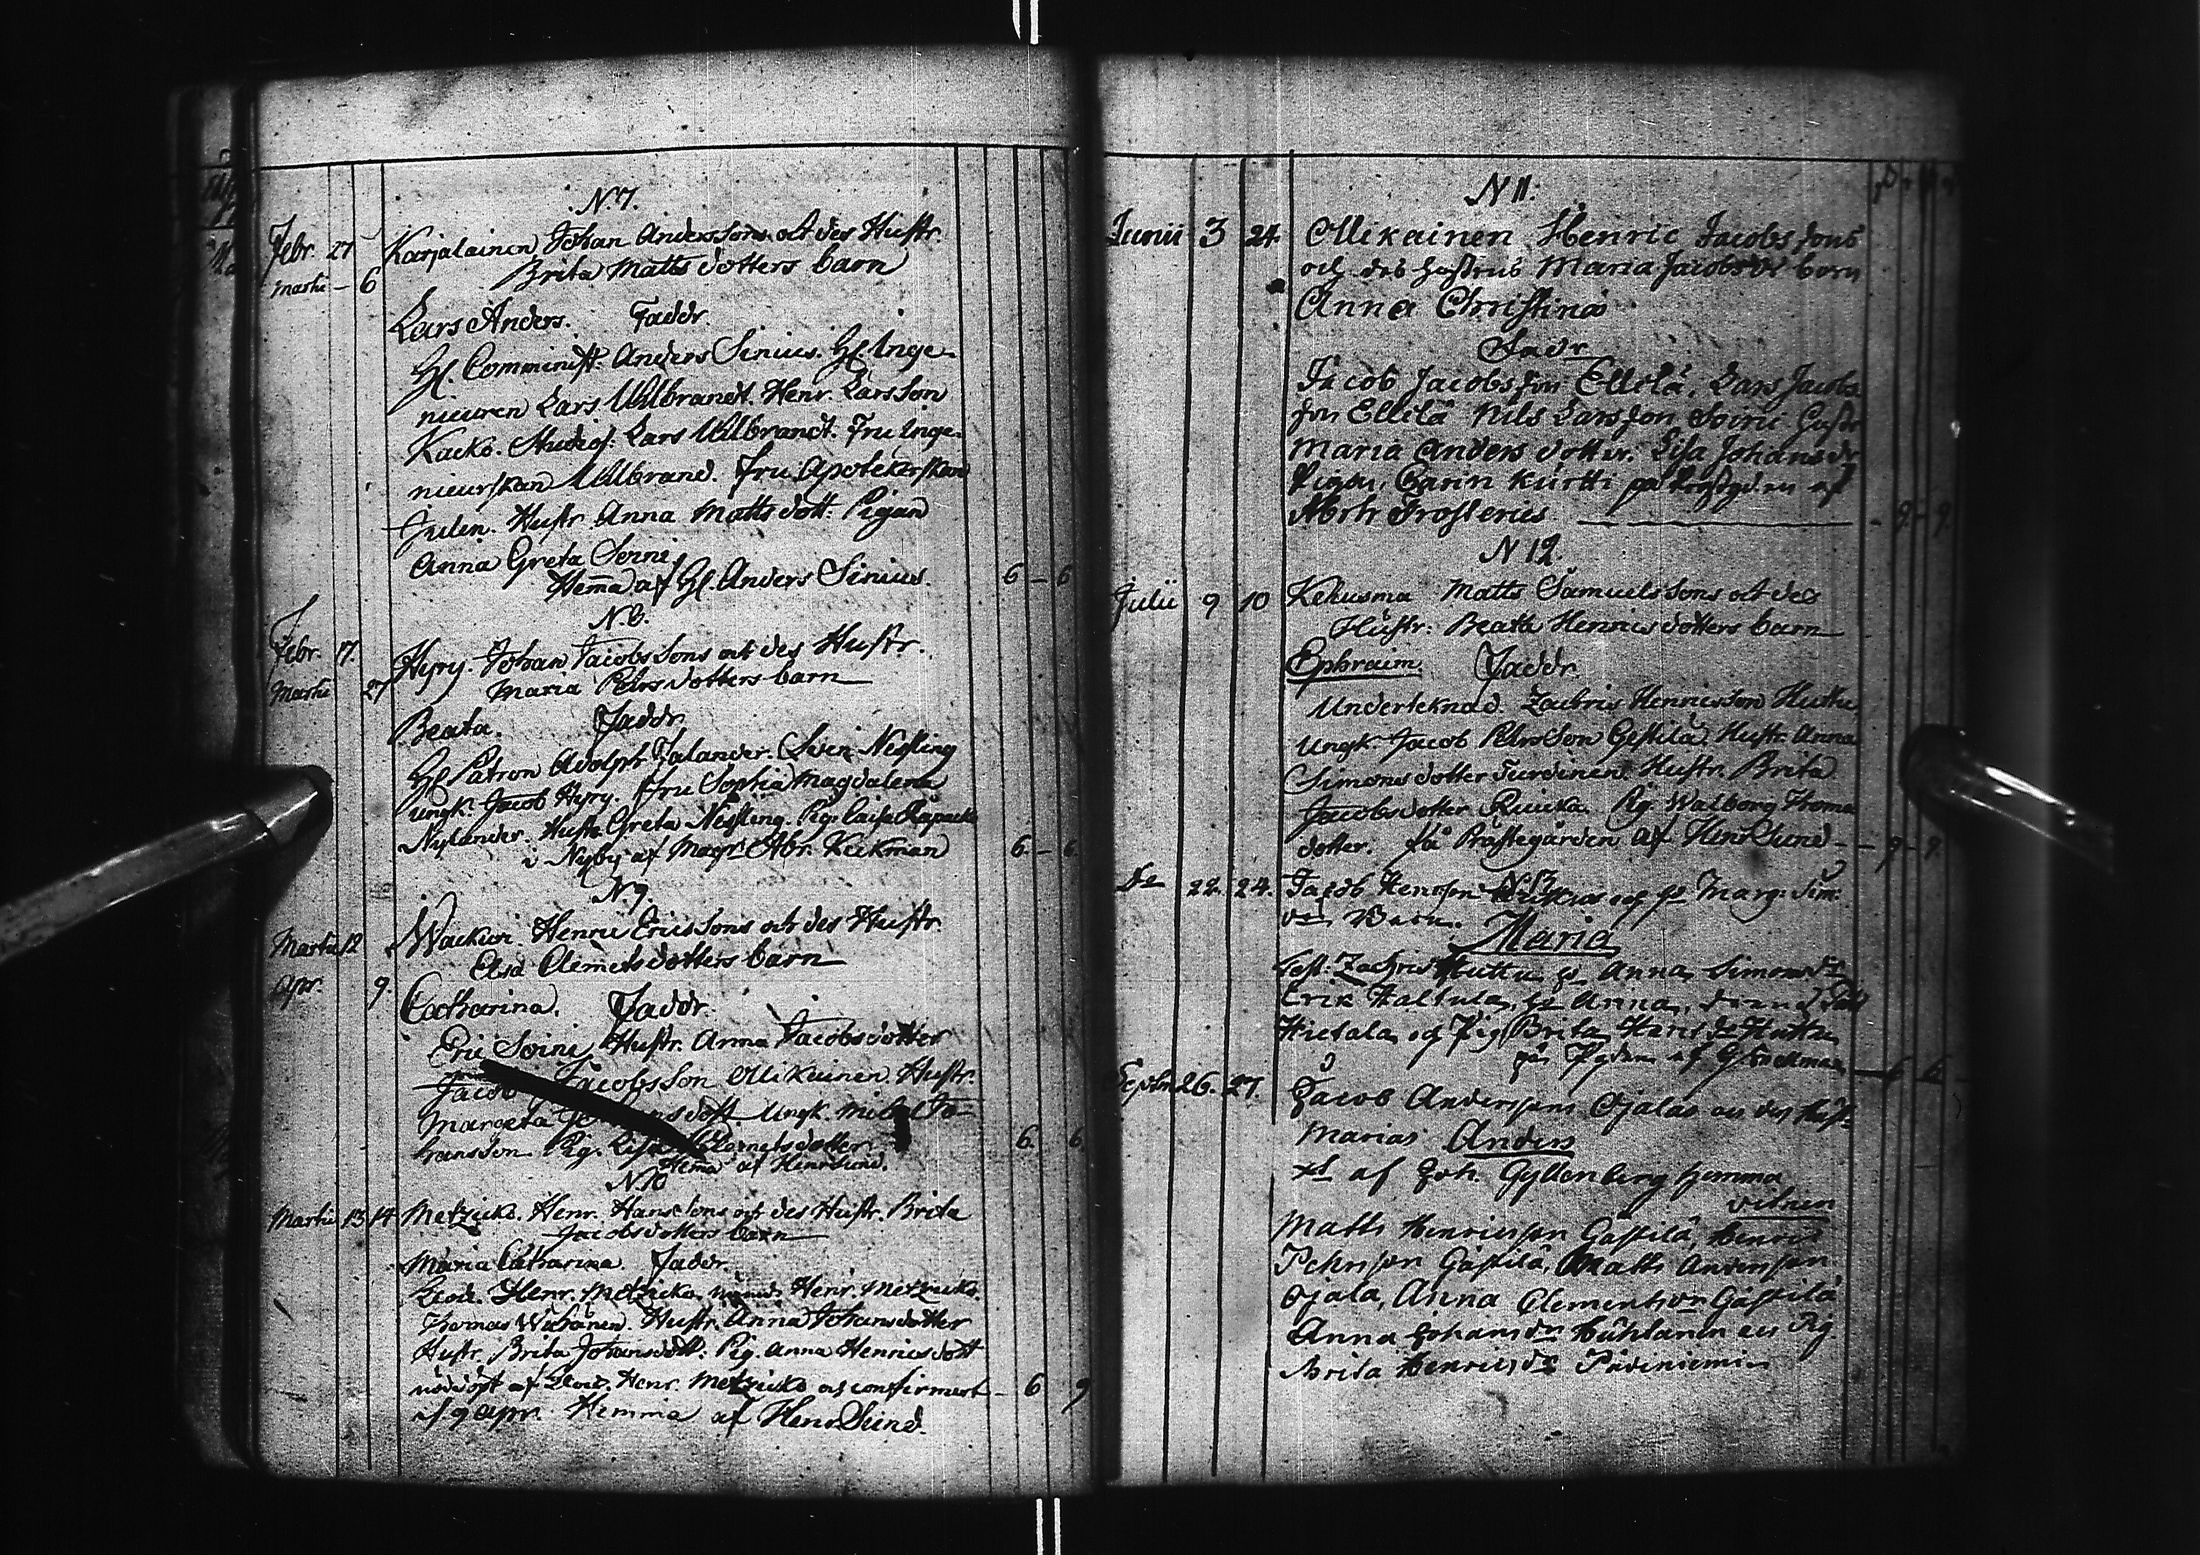 N. 7.
Febr. 27 Karjalainen Johan Anderssons och des Hustr.
Martii – 6 Brita Matts dotters barn
Lars Anders. Faddr.
Hl. Comminist. Anders Sinius. Hl. Inge-
nieuren Lars Uhlbrandt. Henr. Larsson
Kacko. Studios. Lars Uhlbrandt. Fru Inge-
nieurskan Uhlbrand. Fru Apotekerskan
Julin. Hustr. Anna Matts dott. Pigan
Anna Greta Soini
Hema af Hl. Anders Sinius. 6 – 6
N. 8.
Febr. 17. Hyry. Johan Jacobs Sons och des Hustr.
Martii 27 Maria Pehrs dotters barn
Beata. Faddr.
Hl Patron Adolph Jalander. Sven Nessling
ungk. Jacob Hyry. Fru Sophia Magdalena
Nylander. Hustr. Greta Nessling. Pig. Caisa
i Nyby af Magr. Abr. Keckman 6. – 6
N. 9
Martii 12 Wackuri. Henric Ericssons och des Hustr.
Elsa Clemets dotters barn
Apr. 9. Catharina. Faddr.
Eric Soini Hustr. Anna Jacobsdotter
Jacob Jacobsson Ollikainen. Hustr.
Margeta dott. Ungk. Jo-
hansson Pig. Lisa Clemetsdotter 6. 6
Hema af Henr Sund.
N. 10
Martii 13 14 Metzicko. Henr. Hanssons och des Hustr. Brita
Jacobsdotters barn
Maria Catharina Faddr.
Henr. Metzicko, Henr. Metzicko.
Thomas Hustr. Anna Johansdotter
Hustr. Brita Johansdott. Pig. Anna Henricsdott
nöddöpt af Henr. Metzicko och confirmert – 6 9
af 9 apr. Hemma af Henr Sund.
N 11.
Junii 3 24. Ollikainen Henric Jacobs sons
och des hustrus Maria Jacobsdr barn
Anna Christina
Fadr
Jacob Jacobsson Ellilä, Lars Jacobs
son Ellilä Nils Larsson Soini Hustr
Maria Andersdotter. Lisa Johansdr
Pigan, Carin Kurtti på af
Abrh Frosterus – 9 – 9.
N 12.
Julii 9 10 Kehusma Matts Samuelssons och des
Hustr. Beata Henricsdotters barn
Ephraim. Faddr.
Underteknad. Zachris Henricsson Huttu.
Ungk. Jacob Pehrsson Gästilä. Hustr. Anna
Simonsdotter Turdinen. Hustr. Brita
Jacobsdotter Pig. Walborg Thoma
dotter. på Prästegården af Henr Sund – – 9 – 9.
Do 22. 24. Jacob Henrsson och ho Marg. Sim.
dr Barn.
Maria
Test: Zachris Huttu ho Anna Simonsdr
Erik ho Anna,
Hietala och Pig Brita Henrs dr Huttu
på af – 6 6
Septbr 26. 27. Jacob Anderssons Ojalas och des Hust.
Marias Anders
xt af Joh. Gyllenberg hemma
vitnen
Matts Henricsson Gästilä, Henric
Pehrsson Gästilä, Matts Andersson
Ojala, Anna Clementsdr Gästilä
Anna Johansdr och Pig
Brita Henricsdr